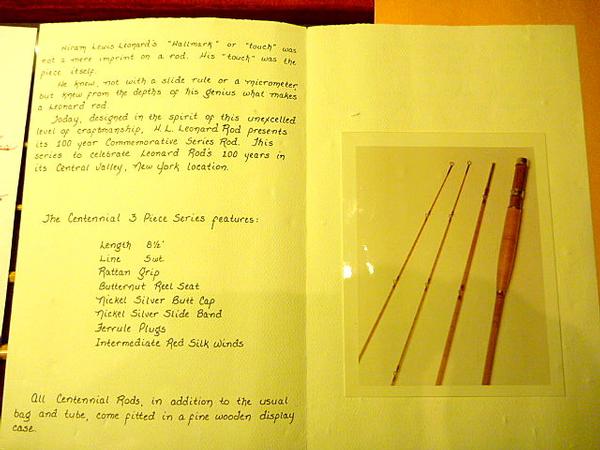 Hiram Lewis Leonard's "Hallmark" or "touch" was
not a mere imprint on a rod. His "touch" was the
piece itself.
He knew, not with a slide rule or a micrometer,
but knew from the depths of his genius what makes
a Leonard rod.
Today, designed in the spirit of this unexcelled
level of craftsmanship, H.L. Leonard Rod presents
its 100 year Commemorative Series Rod. This
series to celebrate Leonard Rod's 100 years in
its Central Valley, New York location.
The Centennial 3 Piece Series features:
Length 8½'
Line 5wt
Rattan Grip
Butternut Reel Seat
Nickel Silver Butt Cap
Nickel Silver Slide Band
Ferrule Plugs
Intermediate Red Silk Winds
All Centennial Rods, in addition to the usual
bag and tube, come fitted in a fine wooden display
case.